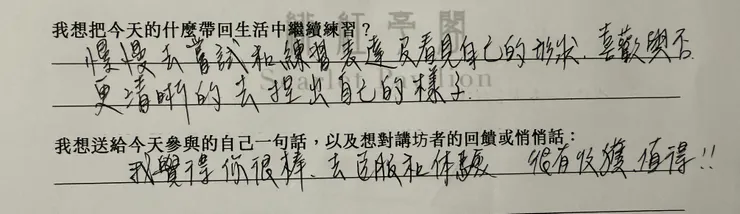 我想把今天的什麼帶回生活中繼續練習？
慢慢去嘗試和練習表達及看見自己的形狀、喜歡與否
更清晰的去捏出自己的樣子.
我想送給今天參與的自己一句話，以及想對講坊者的回饋或悄悄話：
我覺得你很棒、去臣服和体驗 很有收獲、值得!!